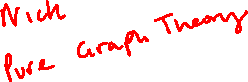 Nich
Pure Graph Theory